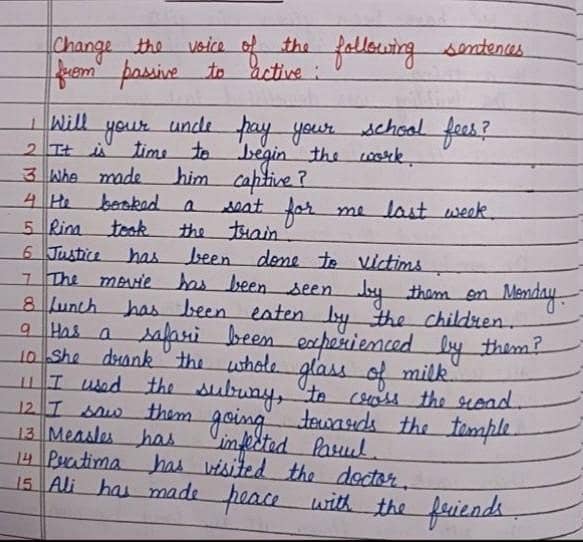 Change the voice of the following sentences
from passive to active :
1 Will your uncle pay your school fees?
2 It is time to begin the work.
3 Who made him captive?
4 He booked a seat for me last week.
5 Rina took the train.
6 Justice has been done to victims.
7 The movie has been seen by them on Monday.
8 Lunch has been eaten by the children.
9 Has a safari been experienced by them?
10 She drank the whole glass of milk.
11 I used the subway, to cross the road.
12 I saw them going towards the temple.
13 Measles has infected Parul.
14 Pratima has visited the doctor.
15 Ali has made peace with the friends.